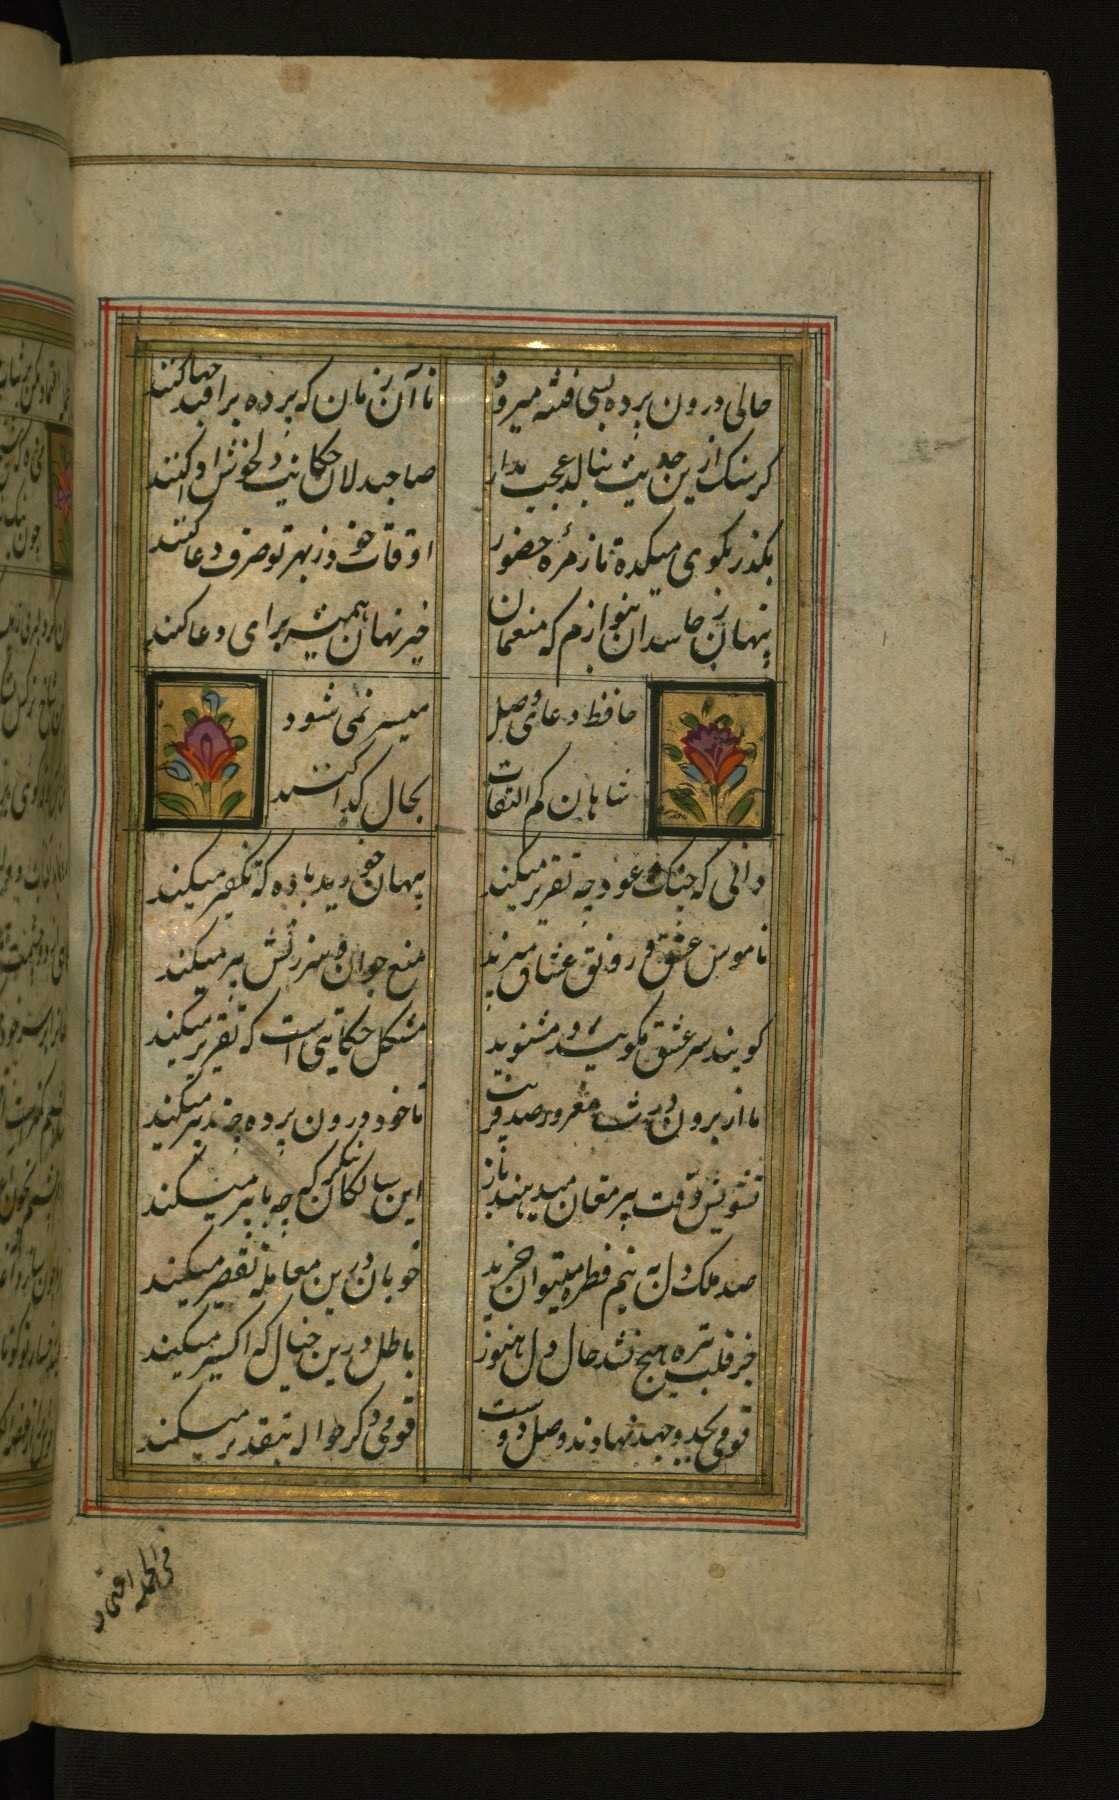 حالی درون پرده بسی فتنه میرود تا آن زمان که پرده برافتد چها کنند
گر سنگ ازین حدیث بنالد عجب مدار صاحبدلان حکایت دلخوش ادا کنند
بگذر بکوی میکده تا زمرهٔ حضور اوقات خود ز بهر تو صرف دعا کنند
پنهان ز حاسدان بخوانم که منعمان خیر نهان همیشه برای دعا کنند
حافظ دعای وصل میسر نمی شود
شاهان کم التفات بحال گدا کنند
دانی که چنگ و عود چه تقریر میکند پنهان خورید باده که تکفیر میکنند
ناموس عشق و رونق عشاق میبرند منع جوان و سرزنش پیر میکنند
گویند سر عشق مگویید و مشنوید مشکل حکایتی است که تقریر میکنند
ما از برون در شده مغرور صد فریب تا خود درون پرده چه تدبیر میکنند
تشویش وقت پیر مغان میدهند باز این سالکان نگر که چه با پیر میکنند
صد ملک دل به نیم نظر میتوان خرید خوبان درین معامله تقصیر میکنند
جز قلب تیره هیچ نشد حال دل هنوز باطل درین خیال که اکسیر میکنند
قومی بجد و جهد نهادند وصل دوست قومی دگر حواله بتقدیر میکنند
فی الجمله اعتماد